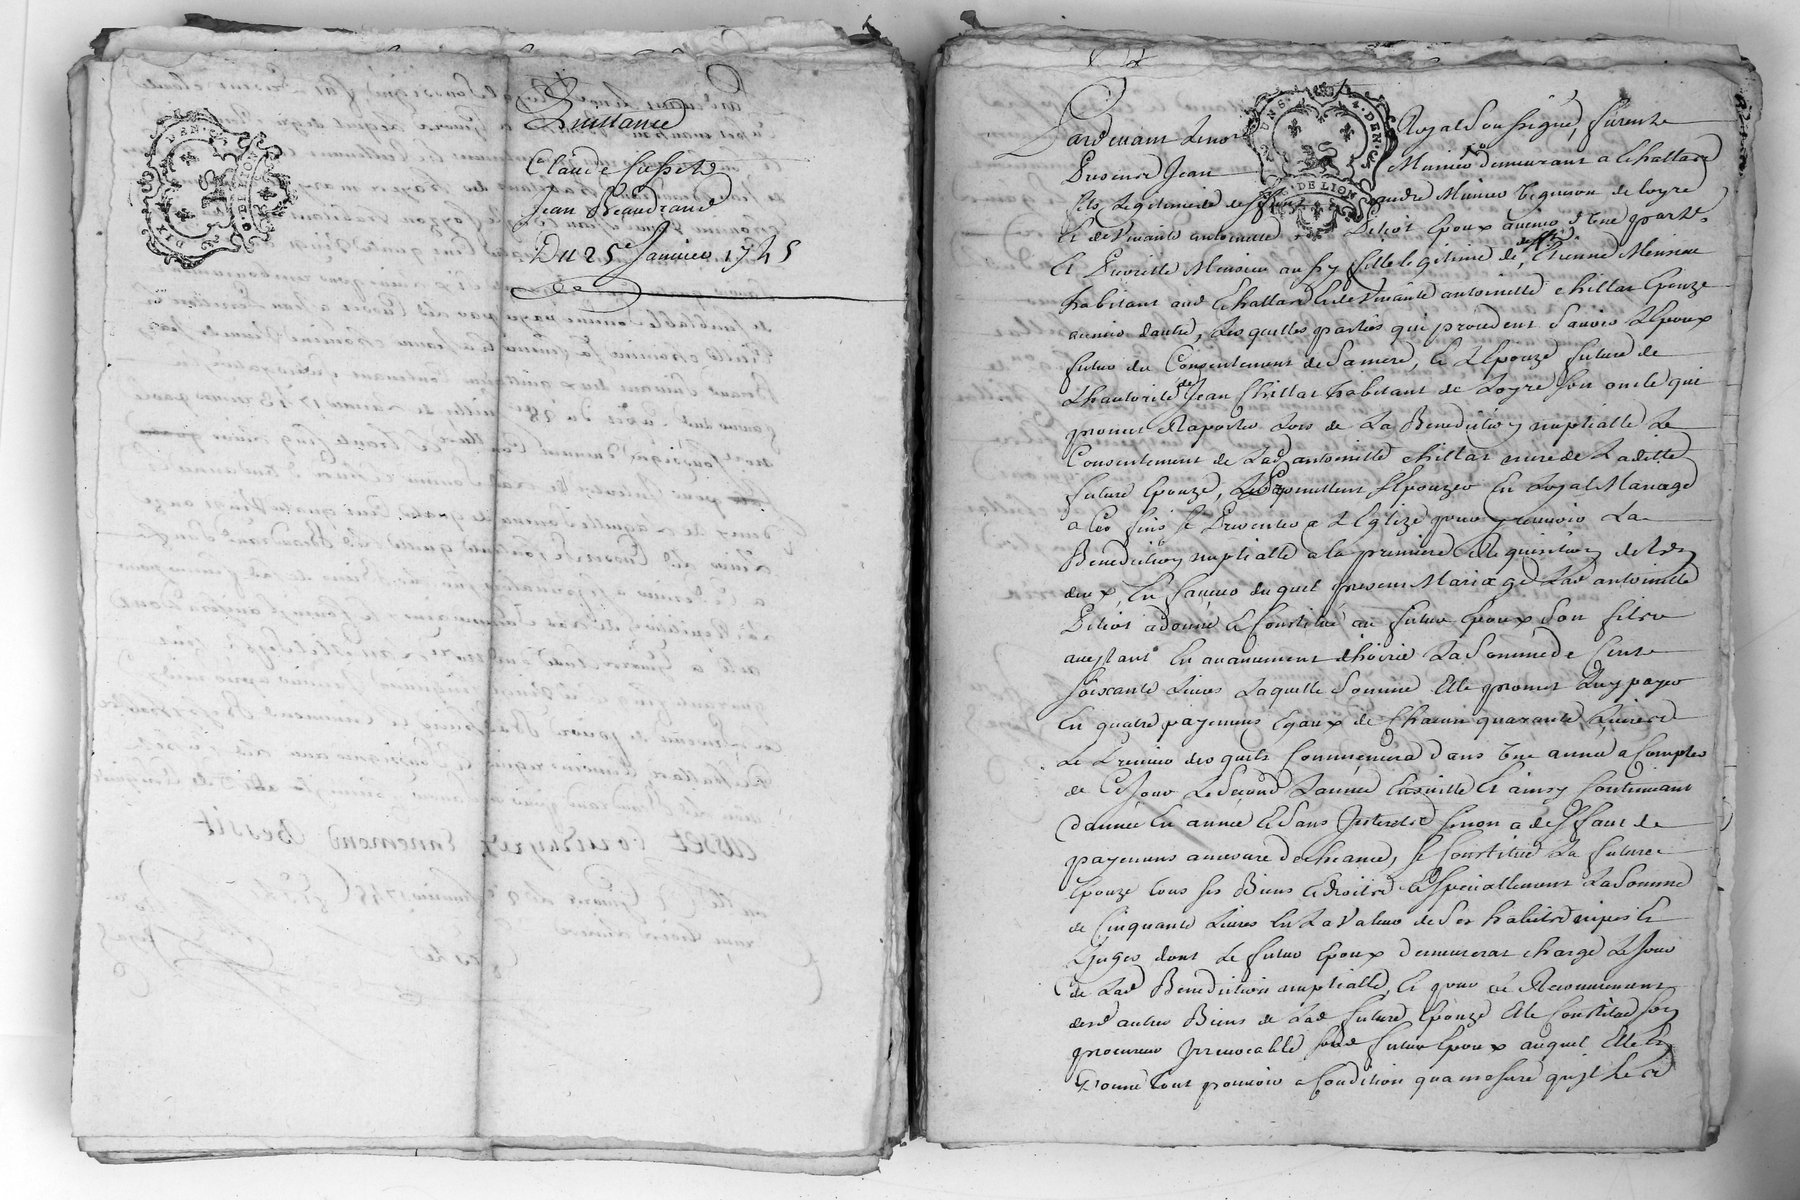 Quittance
Claude Cusset
Jean Beaudrand
Du 25e Janvier 1745
DIX DEN
DE LION
DEN
DE LION
Pardevant Le no Royal Soussigné, furent
Presens Jean Munier demeurant a Chattard
fils Legitime de Munier Vigneron de Loyre
Et de Vivante antoinette Epoux avenir d'Une part
Et Pierrette Munier aussy fille legitime de Etienne Munier
habitant aud Chattard Et de Vivante antoinette Chillat Epouze
avenir dautre, Lesquelles parties qui procedent Savoir L'Epoux
futur du Consentement de Samere, Et L'Epouze future de
Lhautorité de Jean Chillat habitant de Loyre son oncle qui
promet Raporter Lors de La Benediction nuptialle Le
Consentement de Lad antoinette Chillat mere de Laditte
future Epouze, promettent S'Epouzer En Loyal Mariage
a Ces fins se Presenter a L'Eglize pour y recevoir La
Benediction nuptialle a la premiere Requisition de L'un
deux, En faveur duquel presens Mariage Lad antoinette
a donné Et Constitué au futur Epoux Son fils
En avancement d'hoirie La Somme de Cent
soixante Livres Laquelle Somme Elle promet Luy payer
En quatre payemens Egaux de Chacun quarante Livres
Le Premier desquels Commencera dans Une année a Compter
de Ce Jour Le Second L'année Ensuitte Et ainsy Continuant
d'année En année Et Sans Interest sinon a deffaut de
payemens amesure decheance, se Constitue La future
Epouze tous ses Biens Et droits Et Speciallement La Somme
de Cinquante Livres En La Valeur de Ses habits nipes Et
Linges dont Le futur Epoux demeurera chargé Le Jour
de Lad Benediction nuptialle, Et pour le Recouvrement
desd autres Biens de Lad future Epouze Elle Constitue son
procureur Irrevocable led futur Epoux auquel Elle En
Donne tout pouvoir a Condition quamesure qu'il